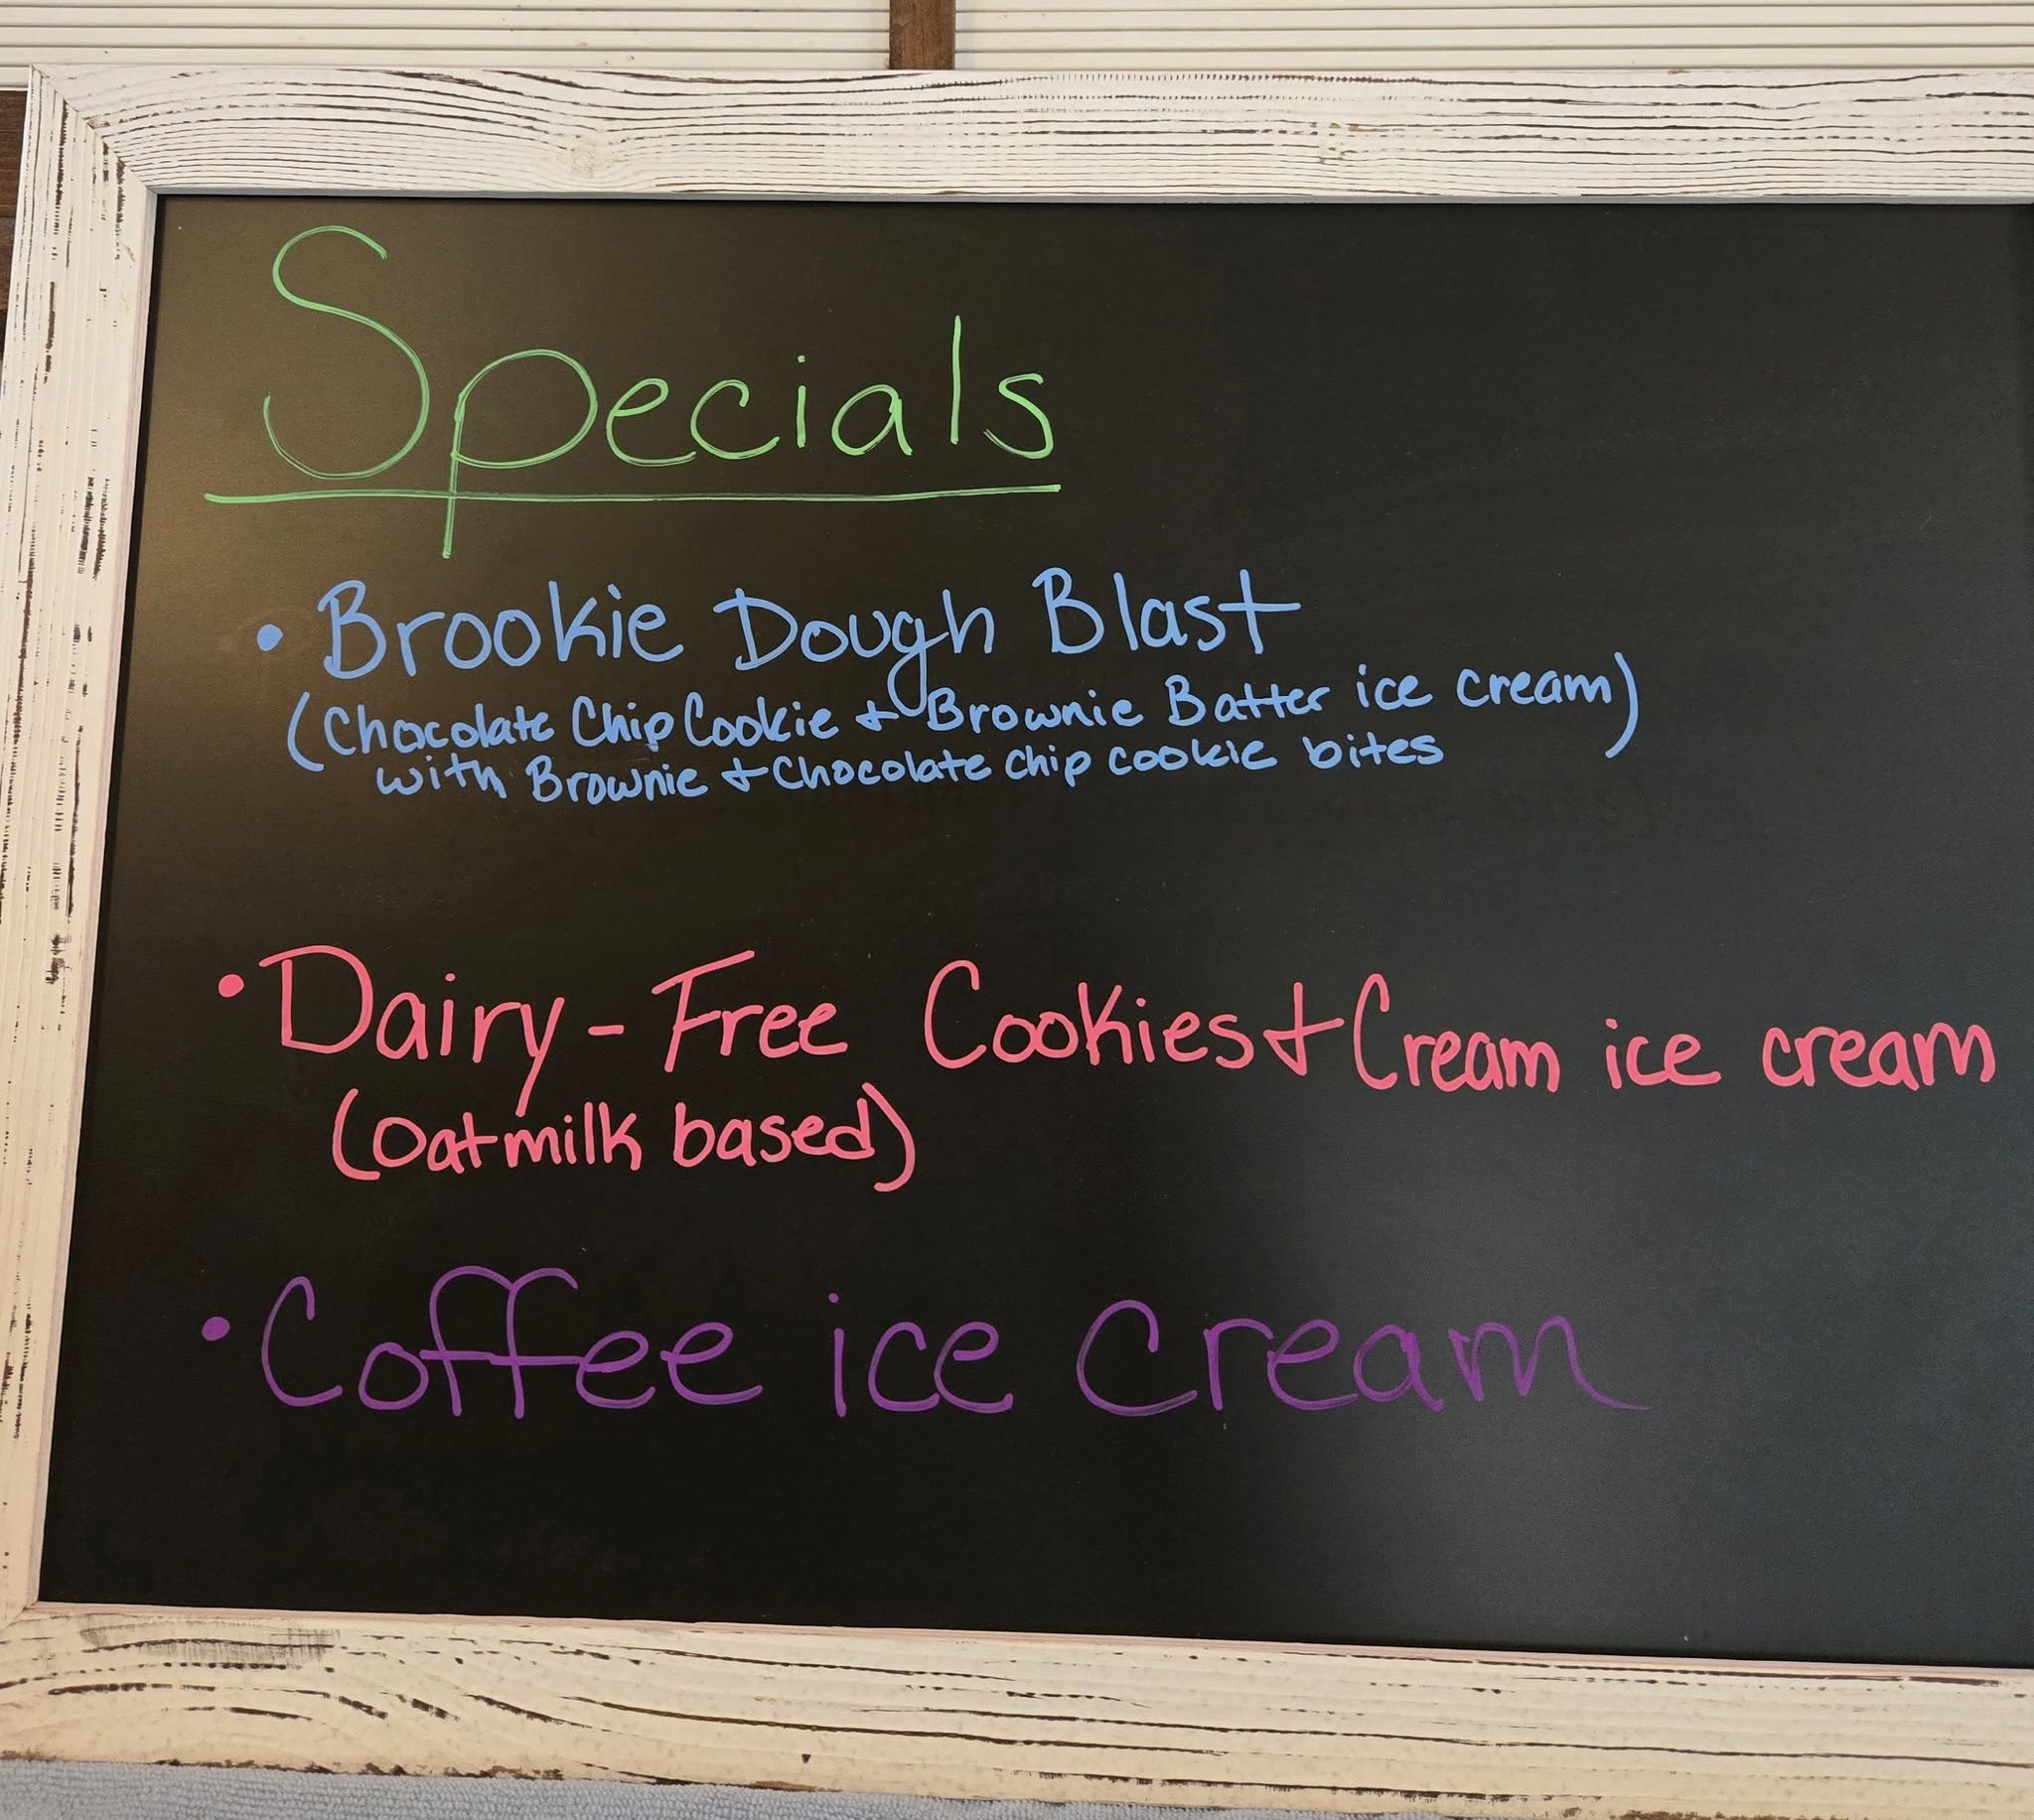 Specials
• Brookie Dough Blast
(Chocolate Chip Cookie + Brownie Batter ice cream)
with Brownie + Chocolate chip cookie bites
• Dairy-Free Cookies + Cream ice cream
(Oatmilk based)
• Coffee ice cream